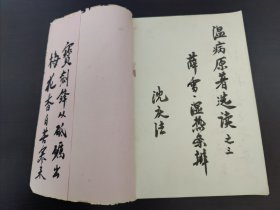 温病原著选读之三
薛雪·湿热条辨
沈庆法
寶劍鋒从砥礪出
梅花香自苦寒来